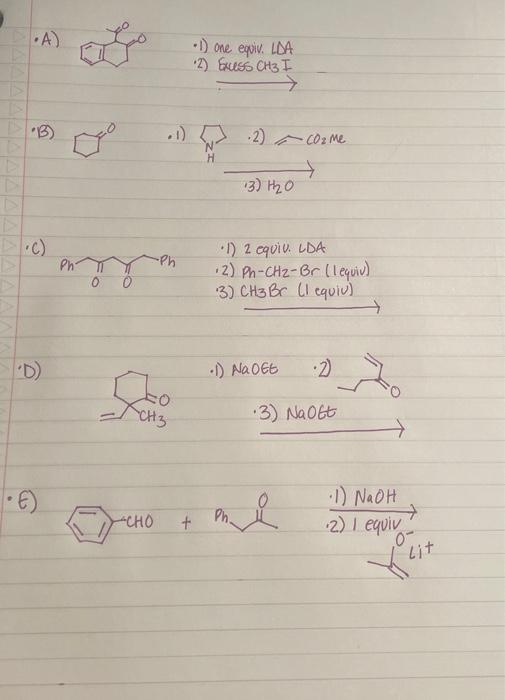 •A)
O
O
•1) one equiv. LDA
•2) Excess CH3 I
•B)
O
•1)
N
H
•2)
CO2Me
•3) H2O
•C)
Ph
Ph
O
O
•1) 2 equiv. LDA
•2) Ph-CH2-Br (1 equiv)
•3) CH3Br (1 equiv)
•D)
O
CH3
•1) NaOEt
•2)
O
•3) NaOEt
•E)
-CHO
+
Ph
O
•1) NaOH
•2) 1 equiv
O-
Li+